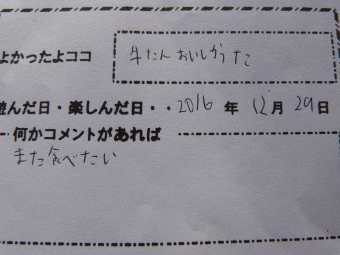 よかったよココ 牛たんおいしかった
遊んだ日・楽しんだ日・・2016年 12月 29日
何かコメントがあれば
また食べたい